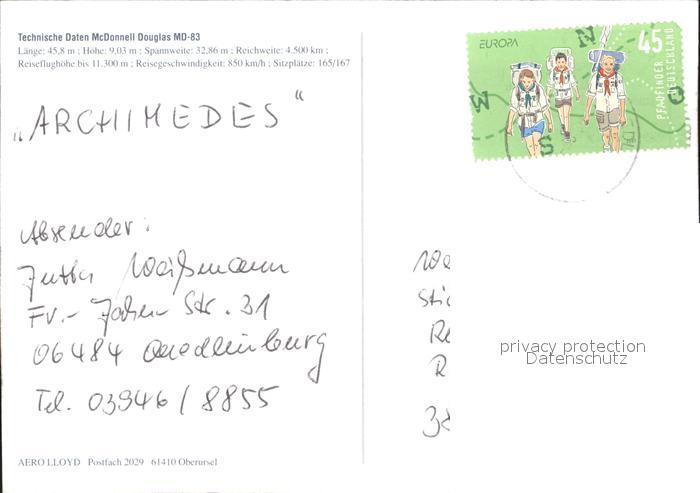 Technische Daten McDonnell Douglas MD-83
Länge: 45,8 m ; Höhe: 9,03 m ; Spannweite: 32,86 m ; Reichweite: 4.500 km ;
Reiseflughöhe bis 11.300 m ; Reisegeschwindigkeit: 850 km/h ; Sitzplätze: 165/167
EUROPA
45
PFADFINDER
DEUTSCHLAND
N
W
O
S
„ARCHIMEDES“
Absender:
Jutta Waißmann
Fr.- Str. 31
06484 Quedlinburg
Tel. 03946 / 8855
Re
R
38
privacy protection
Datenschutz
AERO LLOYD Postfach 2029 61410 Oberursel